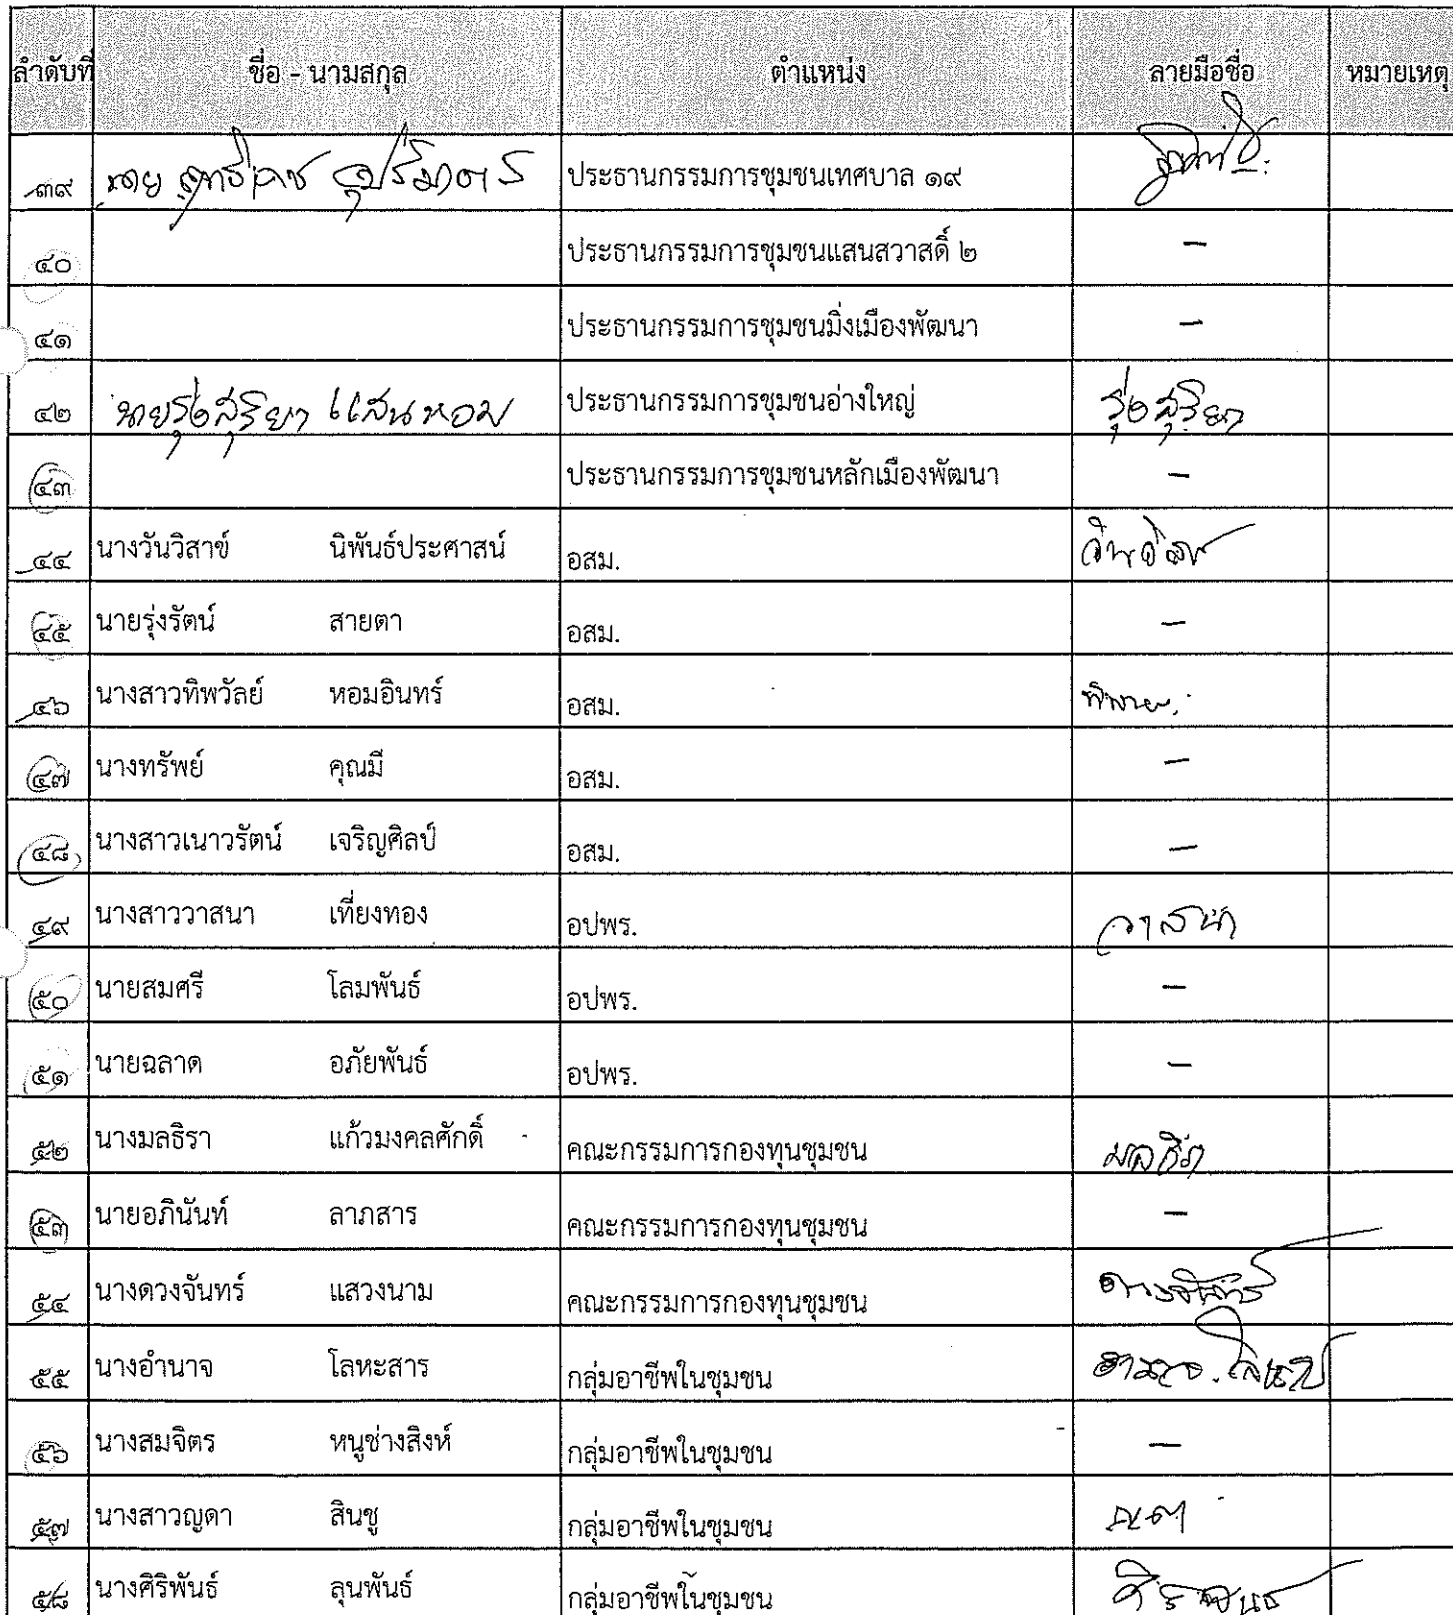 ลำดับที่ ชื่อ - นามสกุล ตำแหน่ง ลายมือชื่อ หมายเหตุ
๓๙ นาย ประธานกรรมการชุมชนเทศบาล ๑๙
๔๐ ประธานกรรมการชุมชนแสนสวาสดิ์ ๒ -
๔๑ ประธานกรรมการชุมชนมิ่งเมืองพัฒนา -
๔๒ นายรุ่งสุริยา แสนหอม ประธานกรรมการชุมชนอ่างใหญ่ รุ่งสุริยา
๔๓ ประธานกรรมการชุมชนหลักเมืองพัฒนา -
๔๔ นางวันวิสาข์ นิพันธ์ประศาสน์ อสม.
๔๕ นายรุ่งรัตน์ สายตา อสม. -
๔๖ นางสาวทิพวัลย์ หอมอินทร์ อสม.
๔๗ นางทรัพย์ คุณมี อสม. -
๔๘ นางสาวเนาวรัตน์ เจริญศิลป์ อสม. -
๔๙ นางสาววาสนา เที่ยงทอง อปพร. วาสนา
๕๐ นายสมศรี โลมพันธ์ อปพร. -
๕๑ นายฉลาด อภัยพันธ์ อปพร. -
๕๒ นางมลธิรา แก้วมงคลศักดิ์ คณะกรรมการกองทุนชุมชน มลธิรา
๕๓ นายอภินันท์ ลาภสาร คณะกรรมการกองทุนชุมชน -
๕๔ นางดวงจันทร์ แสวงนาม คณะกรรมการกองทุนชุมชน ดวงจันทร์
๕๕ นางอำนาจ โลหะสาร กลุ่มอาชีพในชุมชน
๕๖ นางสมจิตร หนูช่างสิงห์ กลุ่มอาชีพในชุมชน -
๕๗ นางสาวญดา สินชู กลุ่มอาชีพในชุมชน ญดา
๕๘ นางศิริพันธ์ ลุนพันธ์ กลุ่มอาชีพในชุมชน